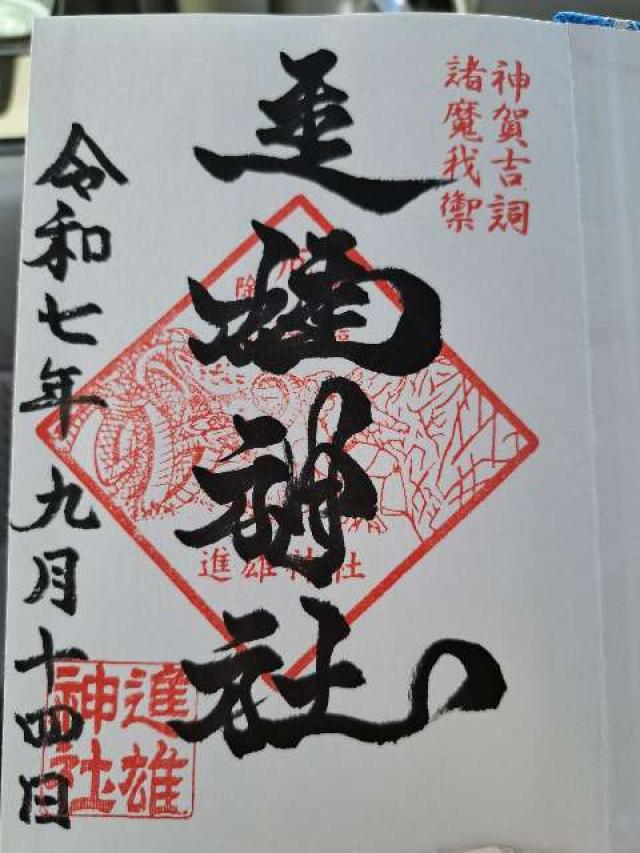 神賀吉詞
諸魔我禦
進雄神社
進雄神社
進雄
神社
令和七年九月十四日